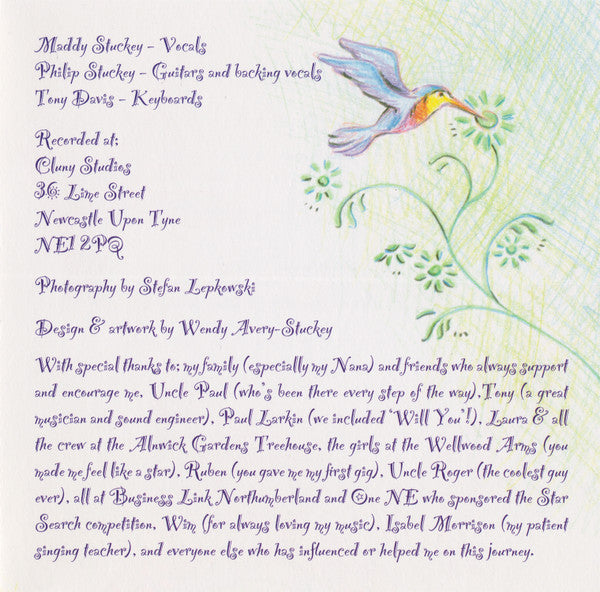 Maddy Stuckey - Vocals
Philip Stuckey - Guitars and backing vocals
Tony Davis - Keyboards
Recorded at;
Cluny Studios
36 Lime Street
Newcastle Upon Tyne
NE1 2PQ
Photography by Stefan Lepkowski
Design & artwork by Wendy Avery-Stuckey
With special thanks to; my family (especially my Nana) and friends who always support
and encourage me, Uncle Paul (who's been there every step of the way),Tony (a great
musician and sound engineer), Paul Larkin (we included 'Will You'!), Laura & all
the crew at the Alnwick Gardens Treehouse, the girls at the Wellwood Arms (you
made me feel like a star), Ruben (you gave me my first gig), Uncle Roger (the coolest guy
ever), all at Business Link Northumberland and One NE who sponsored the Star
Search competition, Wim (for always loving my music), Isabel Morrison (my patient
singing teacher), and everyone else who has influenced or helped me on this journey.